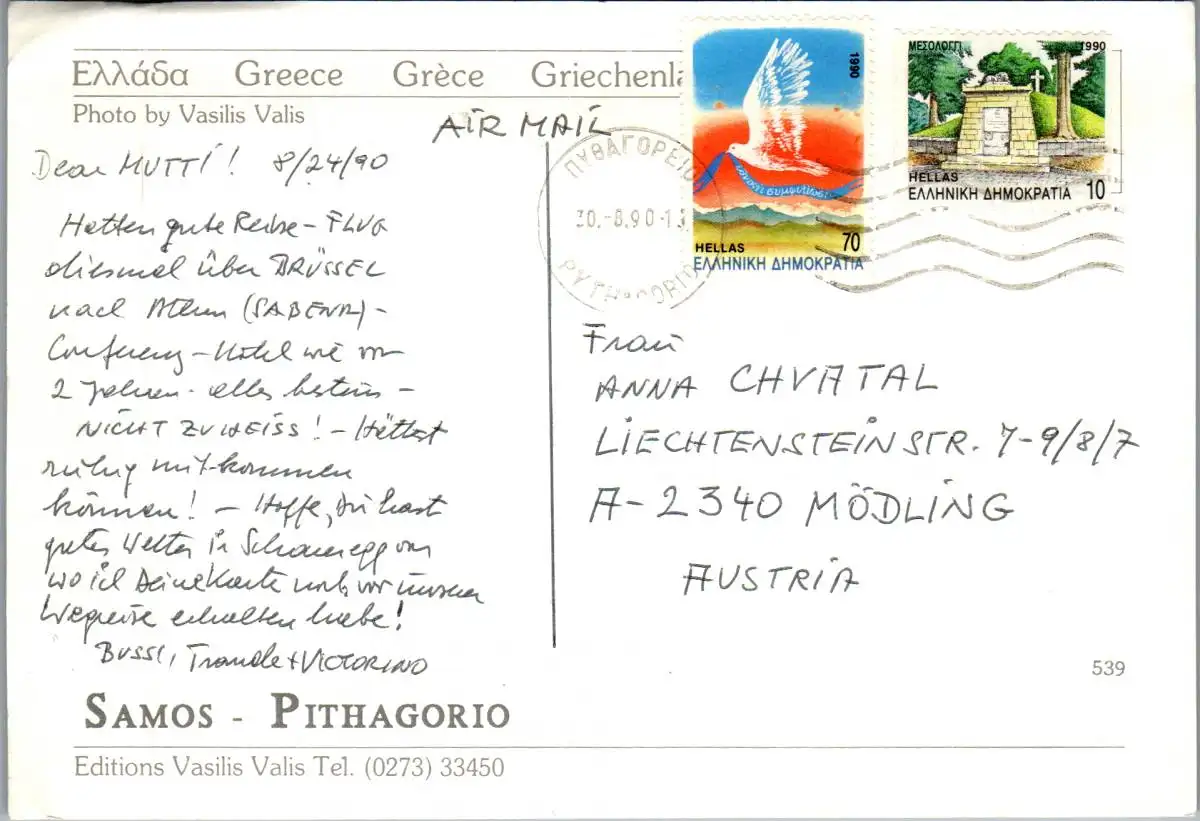 Ελλάδα Greece Grèce Griechenla
Photo by Vasilis Valis
AIR MAIL
Dear MUTTI! 8/24/90
Hatten gute Reise - FLUG
diesmal über BRÜSSEL
nach Athen (SABENA) -
Conferenz - Hotel wie vor
2 Jahren - alles bestens -
NICHT ZU HEISS! - Hättest
ruhig mit-kommen
können! - Hoffe, Du hast
gutes Wetter in Schaueregg von
wo ich Deine Karte noch vor unserer
Wegreise erhalten habe!
BUSSI, Traudle + VICTORINO
SAMOS - PITHAGORIO
Editions Vasilis Valis Tel. (0273) 33450
1990
HELLAS 70
ΕΛΛΗΝΙΚΗ ΔΗΜΟΚΡΑΤΙΑ
ΜΕΣΟΛΟΓΓΙ 1990
HELLAS
ΕΛΛΗΝΙΚΗ ΔΗΜΟΚΡΑΤΙΑ 10
ΠΥΘΑΓΟΡΕΙΟ
30.-8.90-13
Frau
ANNA CHVATAL
LIECHTENSTEINSTR. 7-9/8/7
A-2340 MÖDLING
AUSTRIA
539